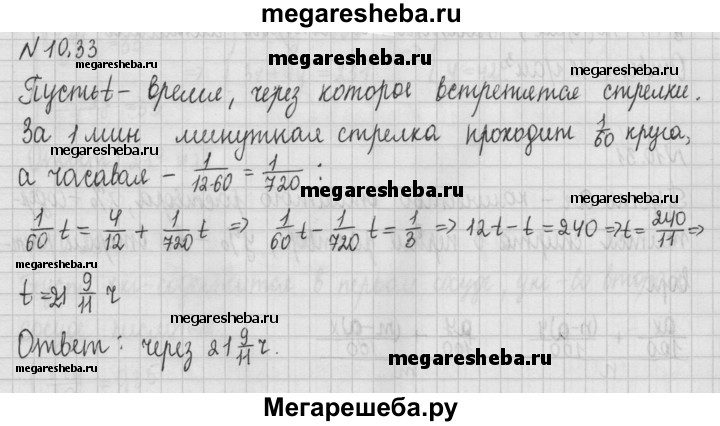 megaresheba.ru
N 10.33
megaresheba.ru
megaresheba.ru
Пусть t - время, через которое встретятся стрелки.
За 1 мин минутная стрелка проходит 1/60 круга,
megaresheba.ru
а часовая - 1/12·60 = 1/720 :
megaresheba.ru
megaresheba.ru
1/60 t = 4/12 + 1/720 t ⇒ 1/60 t - 1/720 t = 1/3 ⇒ 12t - t = 240 ⇒ t = 240/11 ⇒
megaresheba.ru
t = 21 9/11 ч
megaresheba.ru
Ответ: через 21 9/11 ч.
megaresheba.ru
megaresheba.ru
Мегарешеба.ру